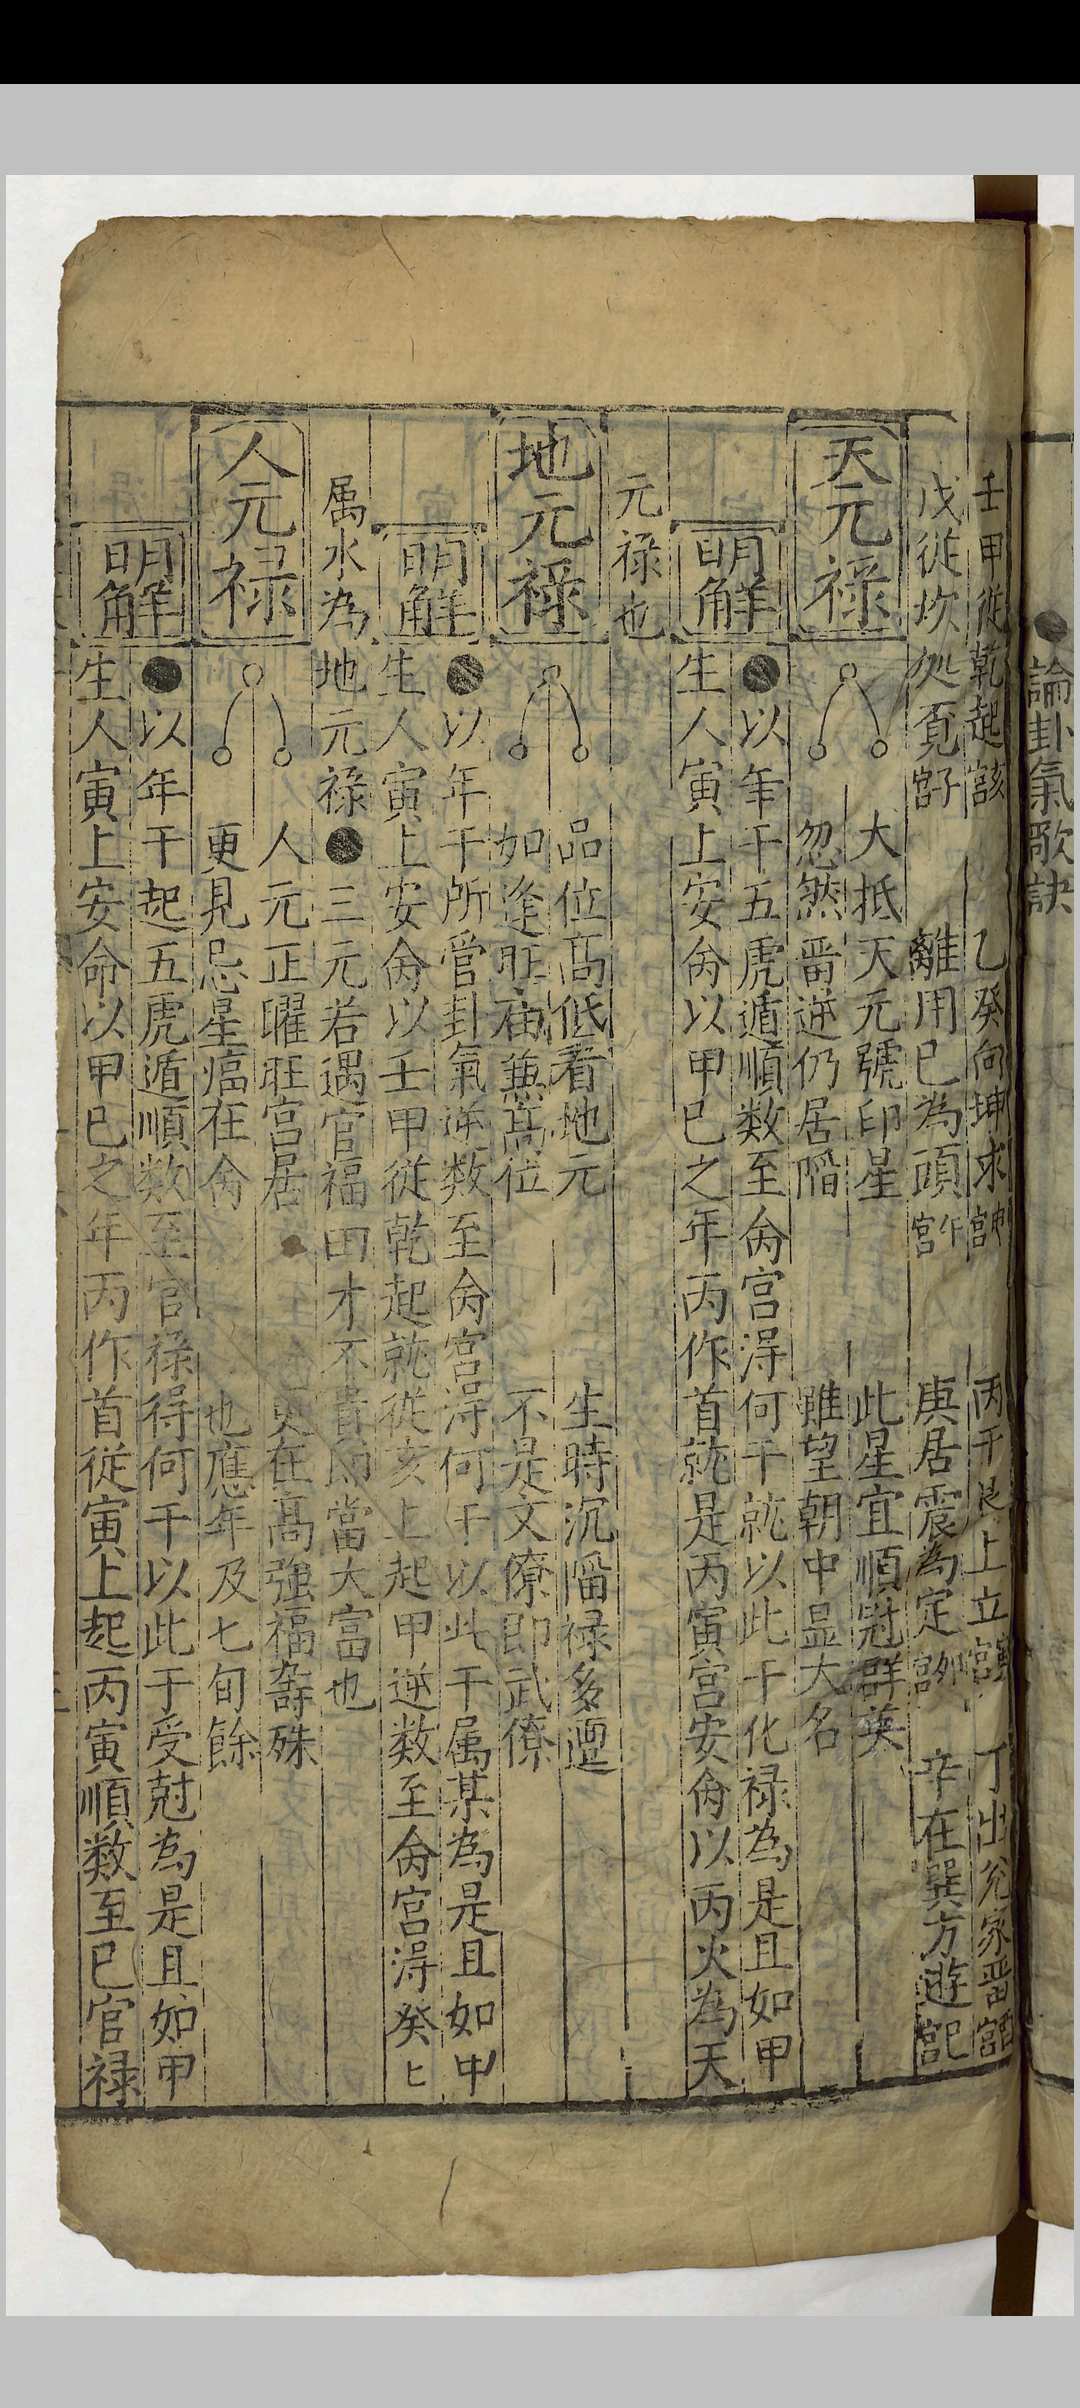 ●論卦氣歌訣
壬甲從乾起亥宮 乙癸向坤求申宮 丙干艮上立寅宮 丁出兊家畱酉宮
戊從坎処覔子宮 離用已為頭午宮 庚居震為定卯宮 辛在巽方遊巳宮
天元禄
大抵天元號印星 此星宜順冠群英
忽然畱逆仍居陷 雖望朝中显大名
明解
●以年干五虎遁順数至命宮淂何干就以此干化禄為是且如甲
生人寅上安命以甲已之年丙作首就是丙寅宮安命以丙火為天
元禄也
地元禄
品位高低看地元 生時沉畱禄多遷
如逢旺庙兼高位 不是文僚即武僚
明解
●以年干所管卦氣逆数至命宮淂何干以此干属某為是且如甲
生人寅上安命以壬甲從乾起就從亥上起甲逆数至命宮淂癸匕
属水為地元禄●三元若遇官福田才不貴即當大富也
人元禄
人元正曜旺宮居 更在高強福夀殊
更見忌星㾔在命 也應年及七旬餘
明解
●以年干起五虎遁順数至官禄得何干以此于受尅為是且如甲
生人寅上安命以甲已之年丙作首從寅上起丙寅順数至巳官禄